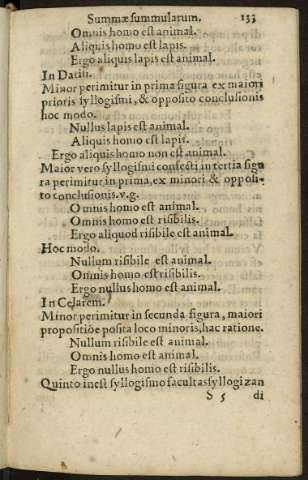 Summæ summularum. 133
Omnis homo est animal.
Aliquis homo est lapis.
Ergo aliquis lapis est animal.
In Datisi.
Minor perimitur in prima figura ex maiori
prioris syllogismi, & opposito conclusionis
hoc modo.
Nullus lapis est animal.
Aliquis homo est lapis.
Ergo aliquis homo non est animal.
Maior vero syllogismi confecti in tertia figu
ra perimitur in prima, ex minori & opposi-
to conclusionis. v.g.
Omnis homo est animal.
Omnis homo est risibilis.
Ergo aliquod risibile est animal.
Hoc modo.
Nullum risibile est animal.
Omnis homo est risibilis.
Ergo nullus homo est animal.
In Celarem.
Minor perimitur in secunda figura, maiori
propositiõe posita loco minoris, hac ratione.
Nullum risibile est animal.
Omnis homo est animal.
Ergo nullus homo est risibilis.
Quinto inest syllogismo facultas syllogizan
S 5 di